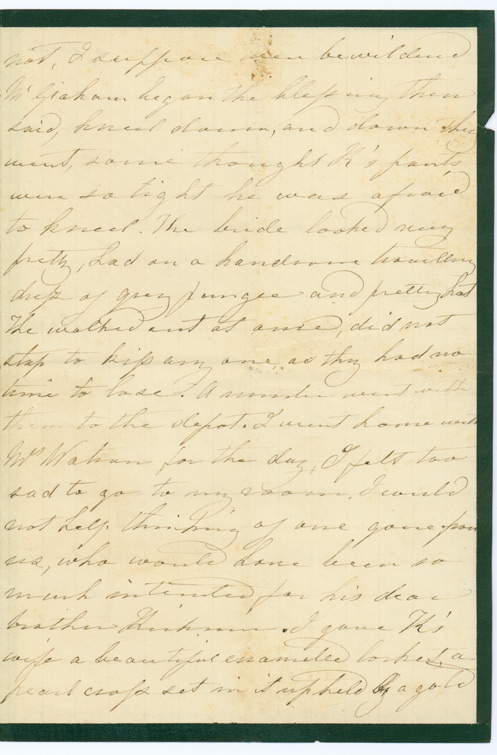 not, I suppose were bewildered
Mr Graham began the blessing then
said, kneel down, and down they
went, some thought K's pants
were so tight he was afraid
to kneel. The bride looked very
pretty, had on a handsome travelling
dress of grey pongee and pretty hat
He walked out at once, did not
stop to kiss any one, as they had no
time to lose. A number went with
them to the depot. I went home with
Mrs Watson for the day, I felt too
sad to go to my room, I could
not help thinking of one gone from
us, who would have been so
much interested for his dear
brother. I gave K's
wife a beautiful enameled locket, a
pearl cross set in it upheld by a gold